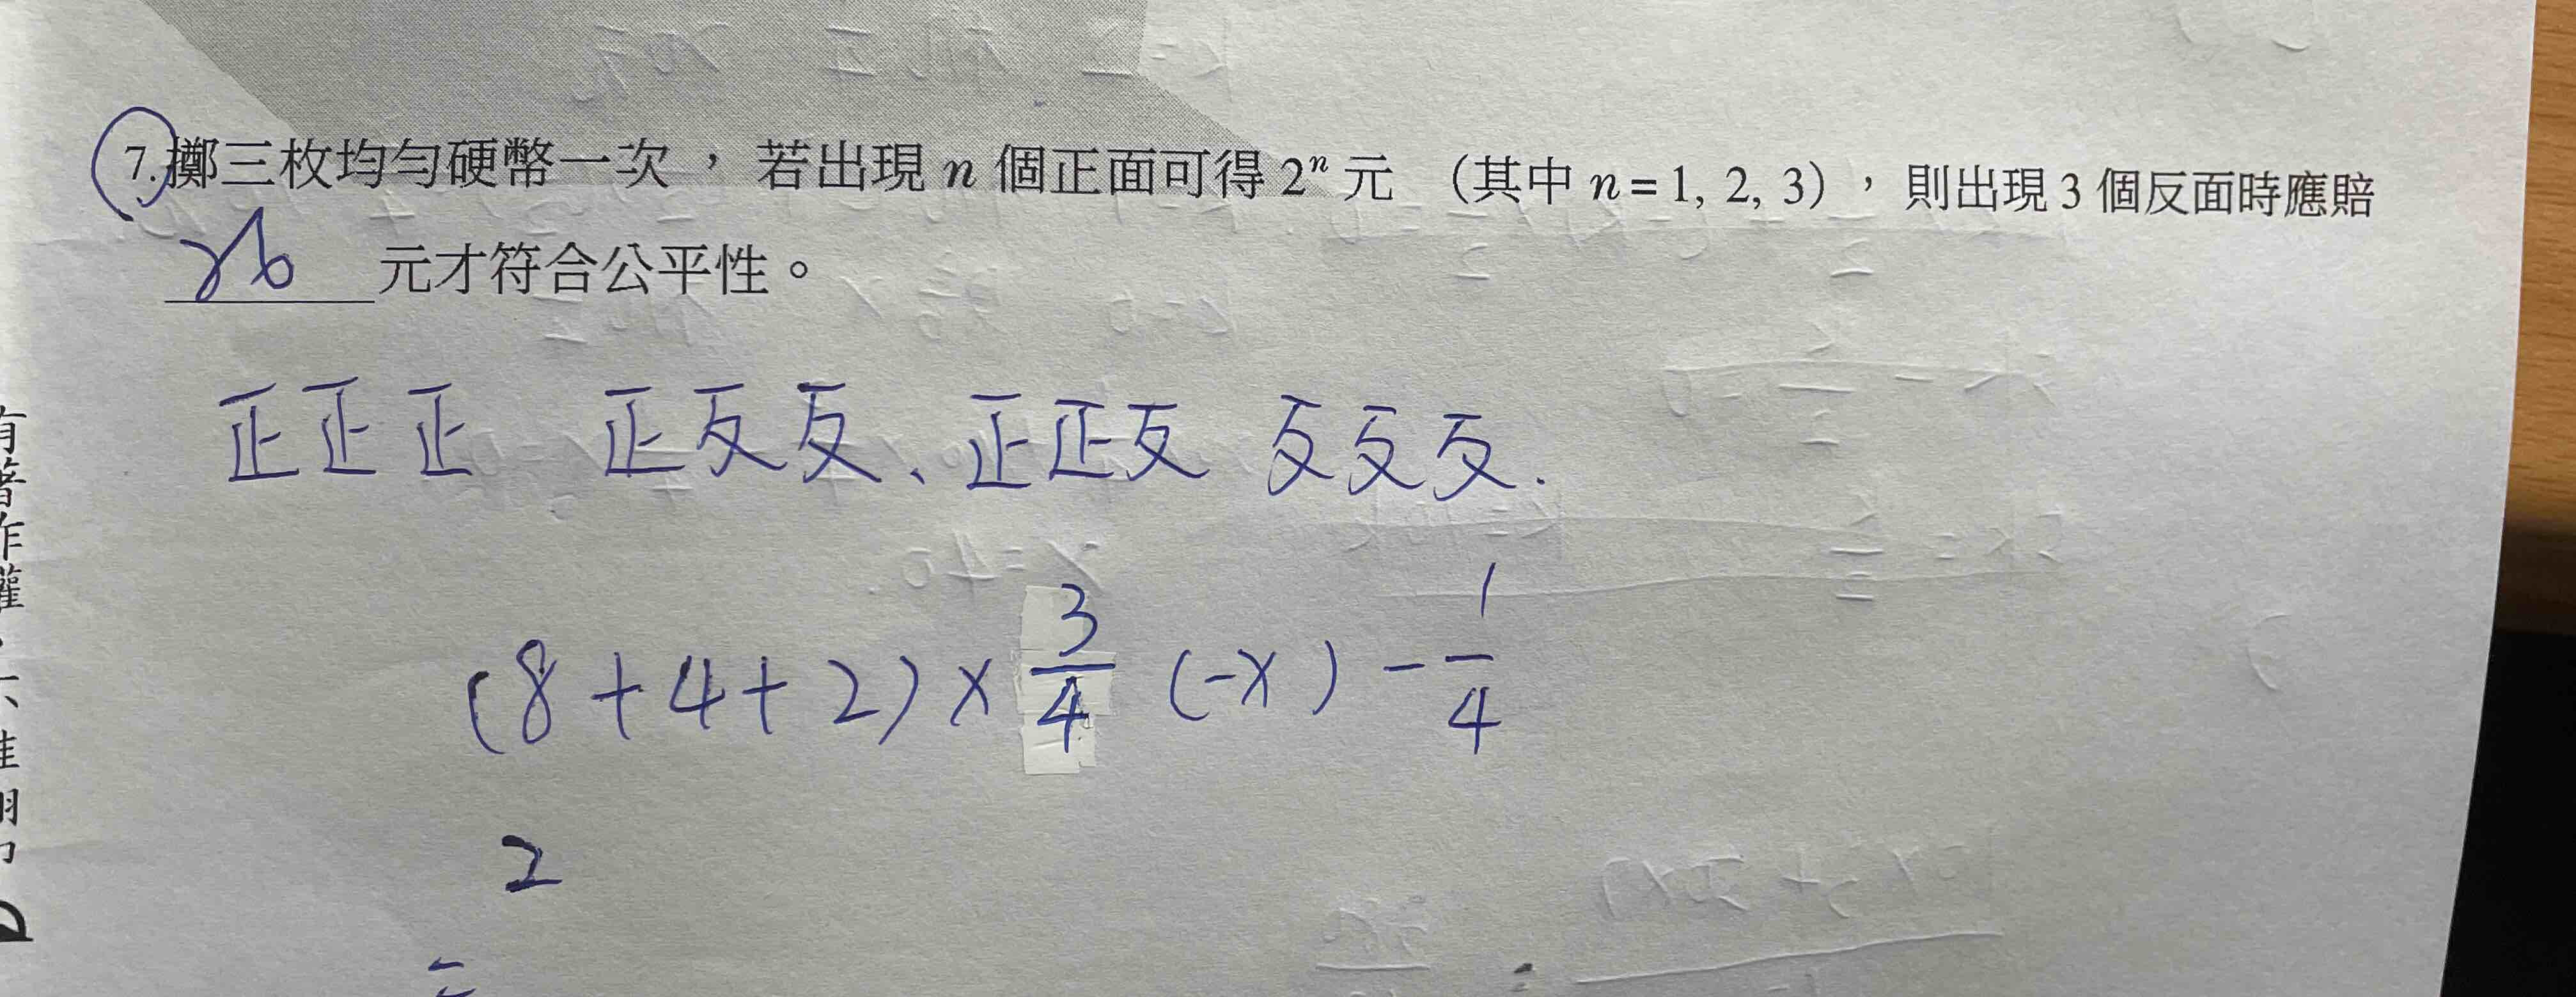 7.擲三枚均勻硬幣一次，若出現 n 個正面可得 2ⁿ 元 （其中 n = 1, 2, 3），則出現 3 個反面時應賠
26 元才符合公平性。
正正正 正反反、正正反 反反反.
(8+4+2)× 3/4 (-x) - 1/4
2
=
有著作權